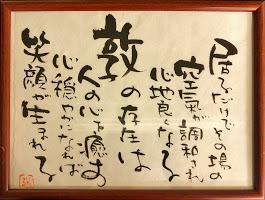 居るだけでその場の
空気が調和され
心地良くなる
敦の存在は
人の心を癒す
心穏やかになれば
笑顔が生まれる